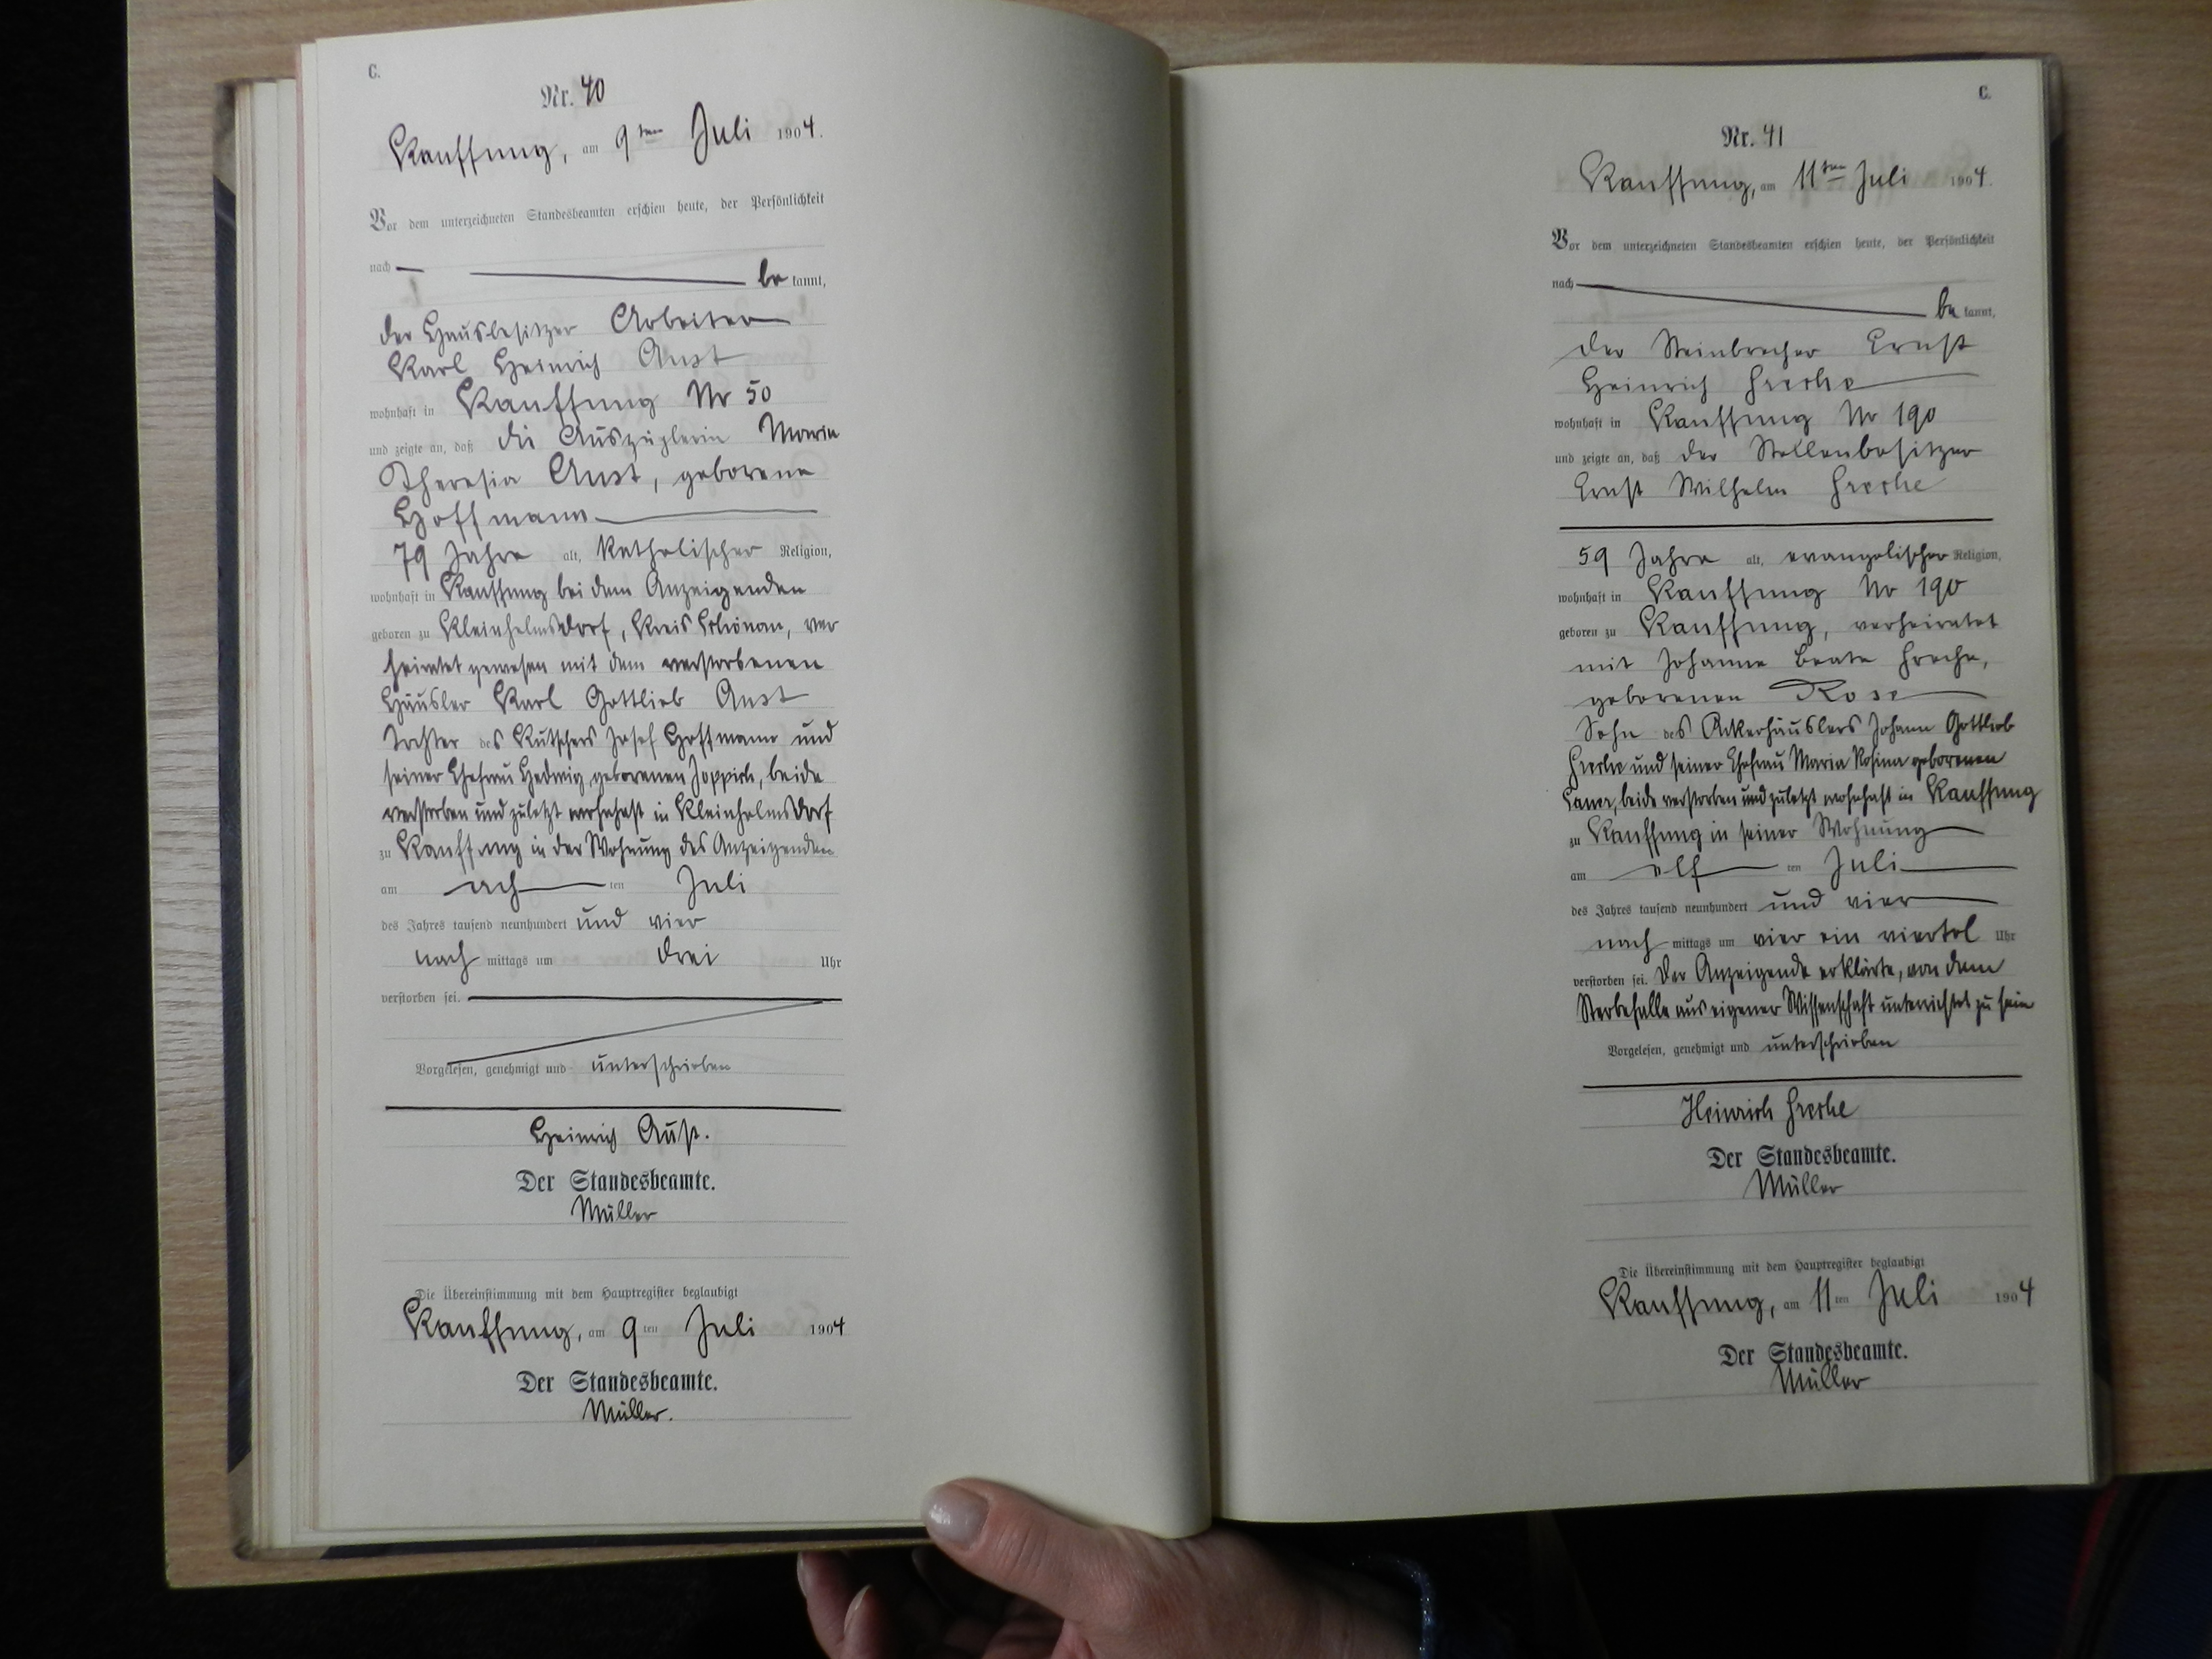 C.
Nr. 40
Kauffung, am 9ten Juli 1904.
Vor dem unterzeichneten Standesbeamten erschien heute, der Persönlichkeit
nach be kannt,
der Hausbesitzer Arbeiter
Karl Heinrich Aust
wohnhaft in Kauffung Nr 50
und zeigte an, daß die Auszüglerin Maria
Theresia Aust, geborene
Hoffmann
79 Jahre alt, katholischer Religion,
wohnhaft in Kauffung bei dem Anzeigenden
geboren zu Kleinhelmsdorf, Kreis Schönau, ver
heiratet gewesen mit dem verstorbenen
Häusler Karl Gottlieb Aust
Tochter des Kutschers Josef Hoffmann und
seiner Ehefrau Hedwig, geborenen Joppich, beide
verstorben und zuletzt wohnhaft in Kleinhelmsdorf
zu Kauffung in der Wohnung des Anzeigenden
am ach ten Juli
des Jahres tausend neunhundert und vier
nach mittags um drei Uhr
verstorben sei.
Vorgelesen, genehmigt und unterschrieben
Heinrich Aust.
Der Standesbeamte.
Müller
Die Übereinstimmung mit dem Hauptregister beglaubigt
Kauffung, am 9 ten Juli 1904
Der Standesbeamte.
Müller.
C.
Nr. 41
Kauffung, am 11ten Juli 1904.
Vor dem unterzeichneten Standesbeamten erschien heute, der Persönlichkeit
nach be kannt,
der Steinbrecher Ernst
Heinrich Frerhe
wohnhaft in Kauffung Nr 190
und zeigte an, daß der Stellenbesitzer
Ernst Wilhelm
59 Jahre alt, evangelischer Religion,
wohnhaft in Kauffung Nr 190
geboren zu Kauffung, verheiratet
mit Johanne Beate
geborenen Rose
Sohn des Ackerhäuslers Johann Gottlieb
und seiner Ehefrau Maria Rosina geborenen
beide verstorben und zuletzt wohnhaft in Kauffung
zu Kauffung in seiner Wohnung
am elf ten Juli
des Jahres tausend neunhundert und vier
nach mittags um vier ein viertel Uhr
verstorben sei. Der Anzeigende erklärte, von dem
Sterbefalle aus eigener Wissenschaft unterrichtet zu sein
Vorgelesen, genehmigt und unterschrieben
Heinrich
Der Standesbeamte.
Müller
Die Übereinstimmung mit dem Hauptregister beglaubigt
Kauffung, am 11 ten Juli 1904
Der Standesbeamte.
Müller